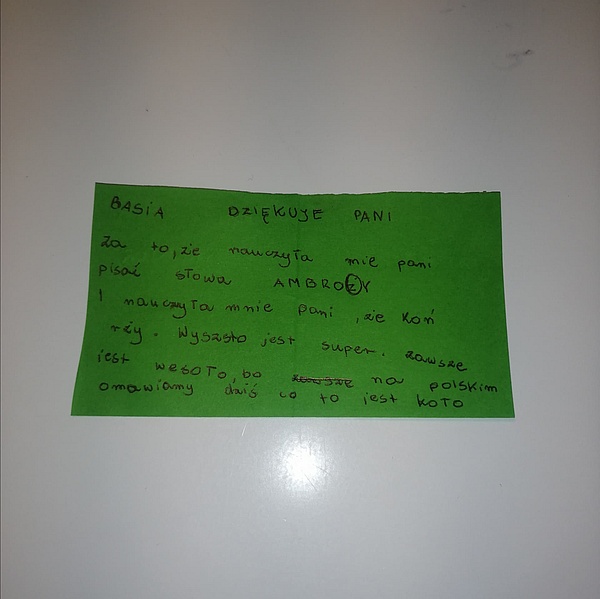 BASIA DZIĘKUJE PANI
Za to, że nauczyła mie pani
pisać słowa AMBROŻY
I nauczyła mnie pani , że koń
rży. Wyszsto jest super. zawsze
jest wesoło, bo na polskim
omawiamy dziś co to jest koło